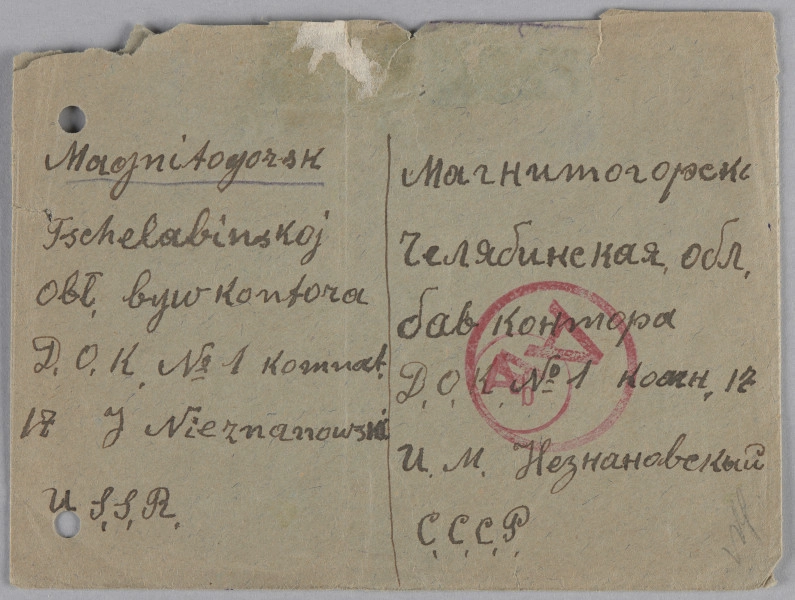 Magnitogorsk
Tschelabinskoj
obł, byw kontora
D, O, K, № 1 komnat,
17 J Nieznanowski
U S, S, R,
Магнитогорск
Челябинская, обл,
бав контора
Д, О, К, № 1 комн, 17
И. М. Незнановскый
С, С, С, Р,